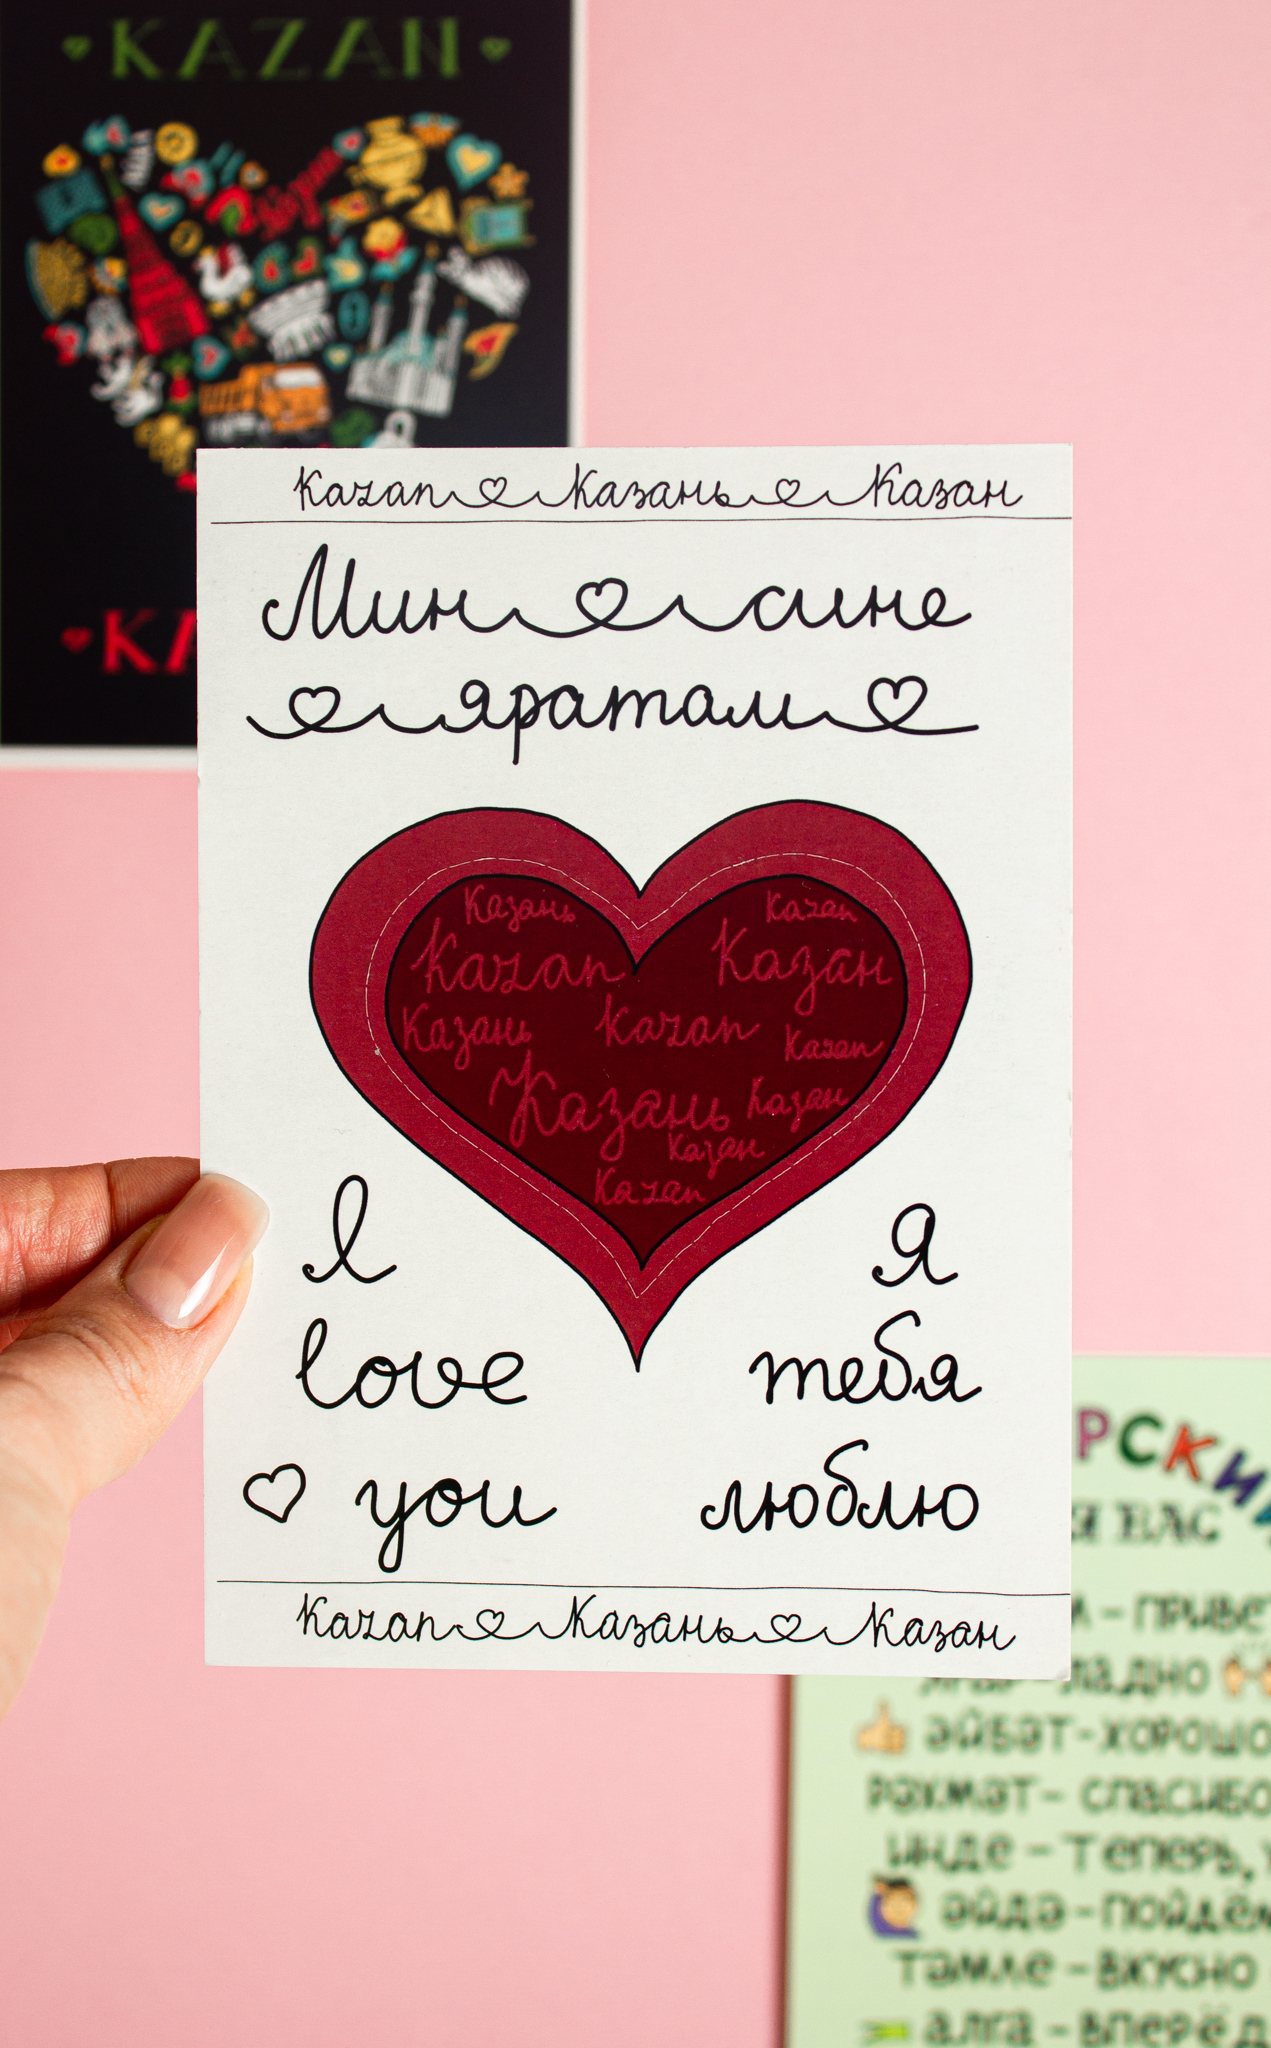 KAZAN
Kazan Казань Казан
Мин сине
яратам
Казань
Kazan
Kazan
Казан
Казань
Kazan
Kazan
Казань
Казан
Казан
Kazan
I
love
you
Я
тебя
люблю
Kazan Казань Казан
КА
РСКИ
ВАС
– ПРИВЕТ
ЛАДНО
ӘЙБӘТ – ХОРОШО
РӘХМӘТ – СПАСИБО
ИНДЕ – ТЕПЕРЬ,
ӘЙДӘ – ПОЙДЁМ
ТӘМЛЕ – ВКУСНО
АЛГА – ВПЕРЁД